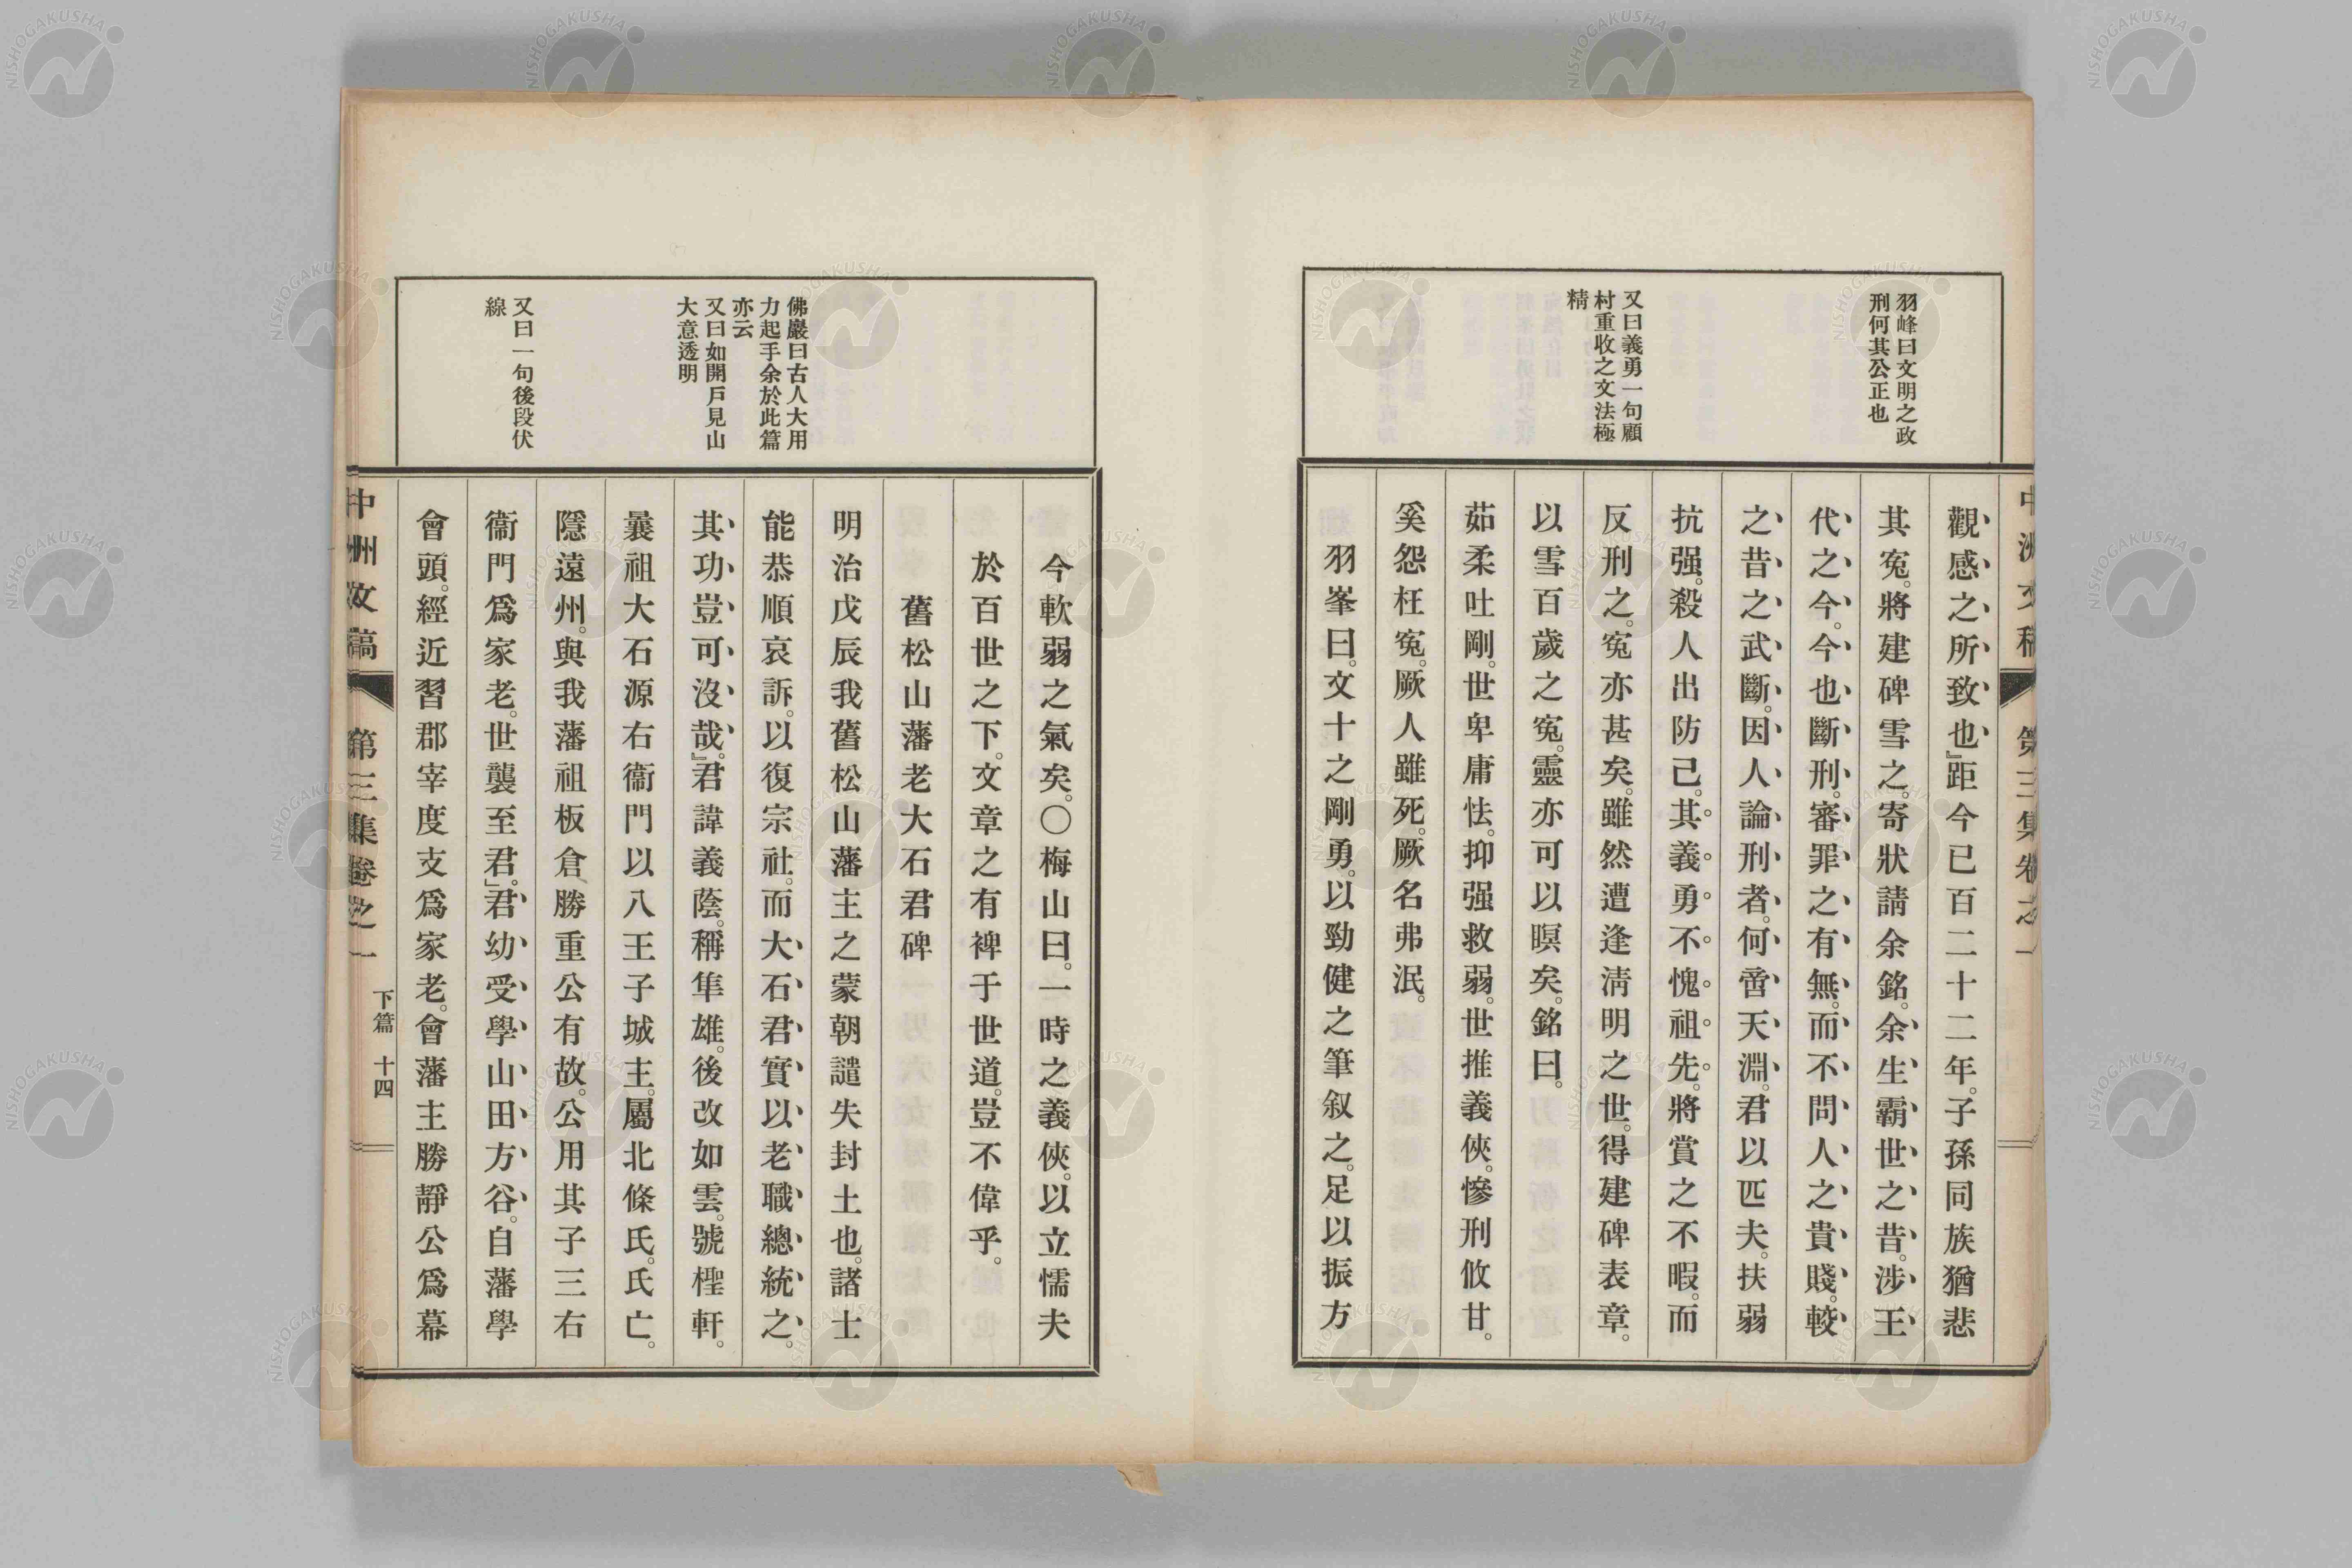 羽峰曰文明之政
刑何其公正也
又曰義勇一句顧
村重收之文法極
精
觀感之所致也』距今已百二十二年。子孫同族猶悲
其冤。將建碑雪之。寄狀請余銘。余生霸世之昔。涉王
代之今。今也斷刑。審罪之有無。而不問人之貴賤。較
之昔之武斷。因人論刑者。何啻天淵。君以匹夫。扶弱
抗强。殺人出防己。其義勇不愧祖先。將賞之不暇。而
反刑之。冤亦甚矣。雖然遭逢淸明之世。得建碑表章。
以雪百歲之冤。靈亦可以瞑矣。銘曰。
茹柔吐剛。世卑庸怯。抑强救弱。世推義俠。慘刑攸甘。
奚怨枉冤。厥人雖死。厥名弗泯。
羽峯曰。文十之剛勇。以勁健之筆叙之。足以振方
佛巖曰古人大用
力起手余於此篇
亦云
又曰如開戶見山
大意透明
又曰一句後段伏
線
今軟弱之氣矣。〇梅山曰。一時之義俠。以立懦夫
於百世之下。文章之有裨于世道。豈不偉乎。
舊松山藩老大石君碑
明治戊辰我舊松山藩主之蒙朝譴失封土也。諸士
能恭順哀訴。以復宗社。而大石君實以老職總統之。
其功豈可沒哉。』君諱義蔭。稱隼雄。後改如雲。號檉軒。
曩祖大石源右衞門以八王子城主。屬北條氏。氏亡。
隱遠州。與我藩祖板倉勝重公有故。公用其子三右
衞門爲家老。世襲至君。』君幼受學山田方谷。自藩學
會頭。經近習郡宰度支爲家老。會藩主勝靜公爲幕
中洲文稿
第三集卷之一
下篇
十四